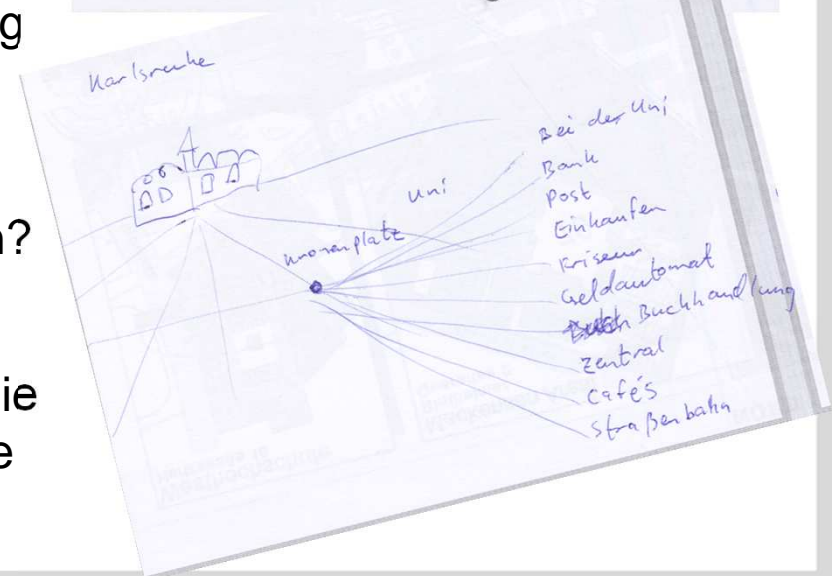 g
Karlsruhe
n?
ie
e
Uni
Kronenplatz
Bei der Uni
Bank
Post
Einkaufen
Friseur
Geldautomat
Buchhandlung
Zentral
Cafés
Straßenbahn